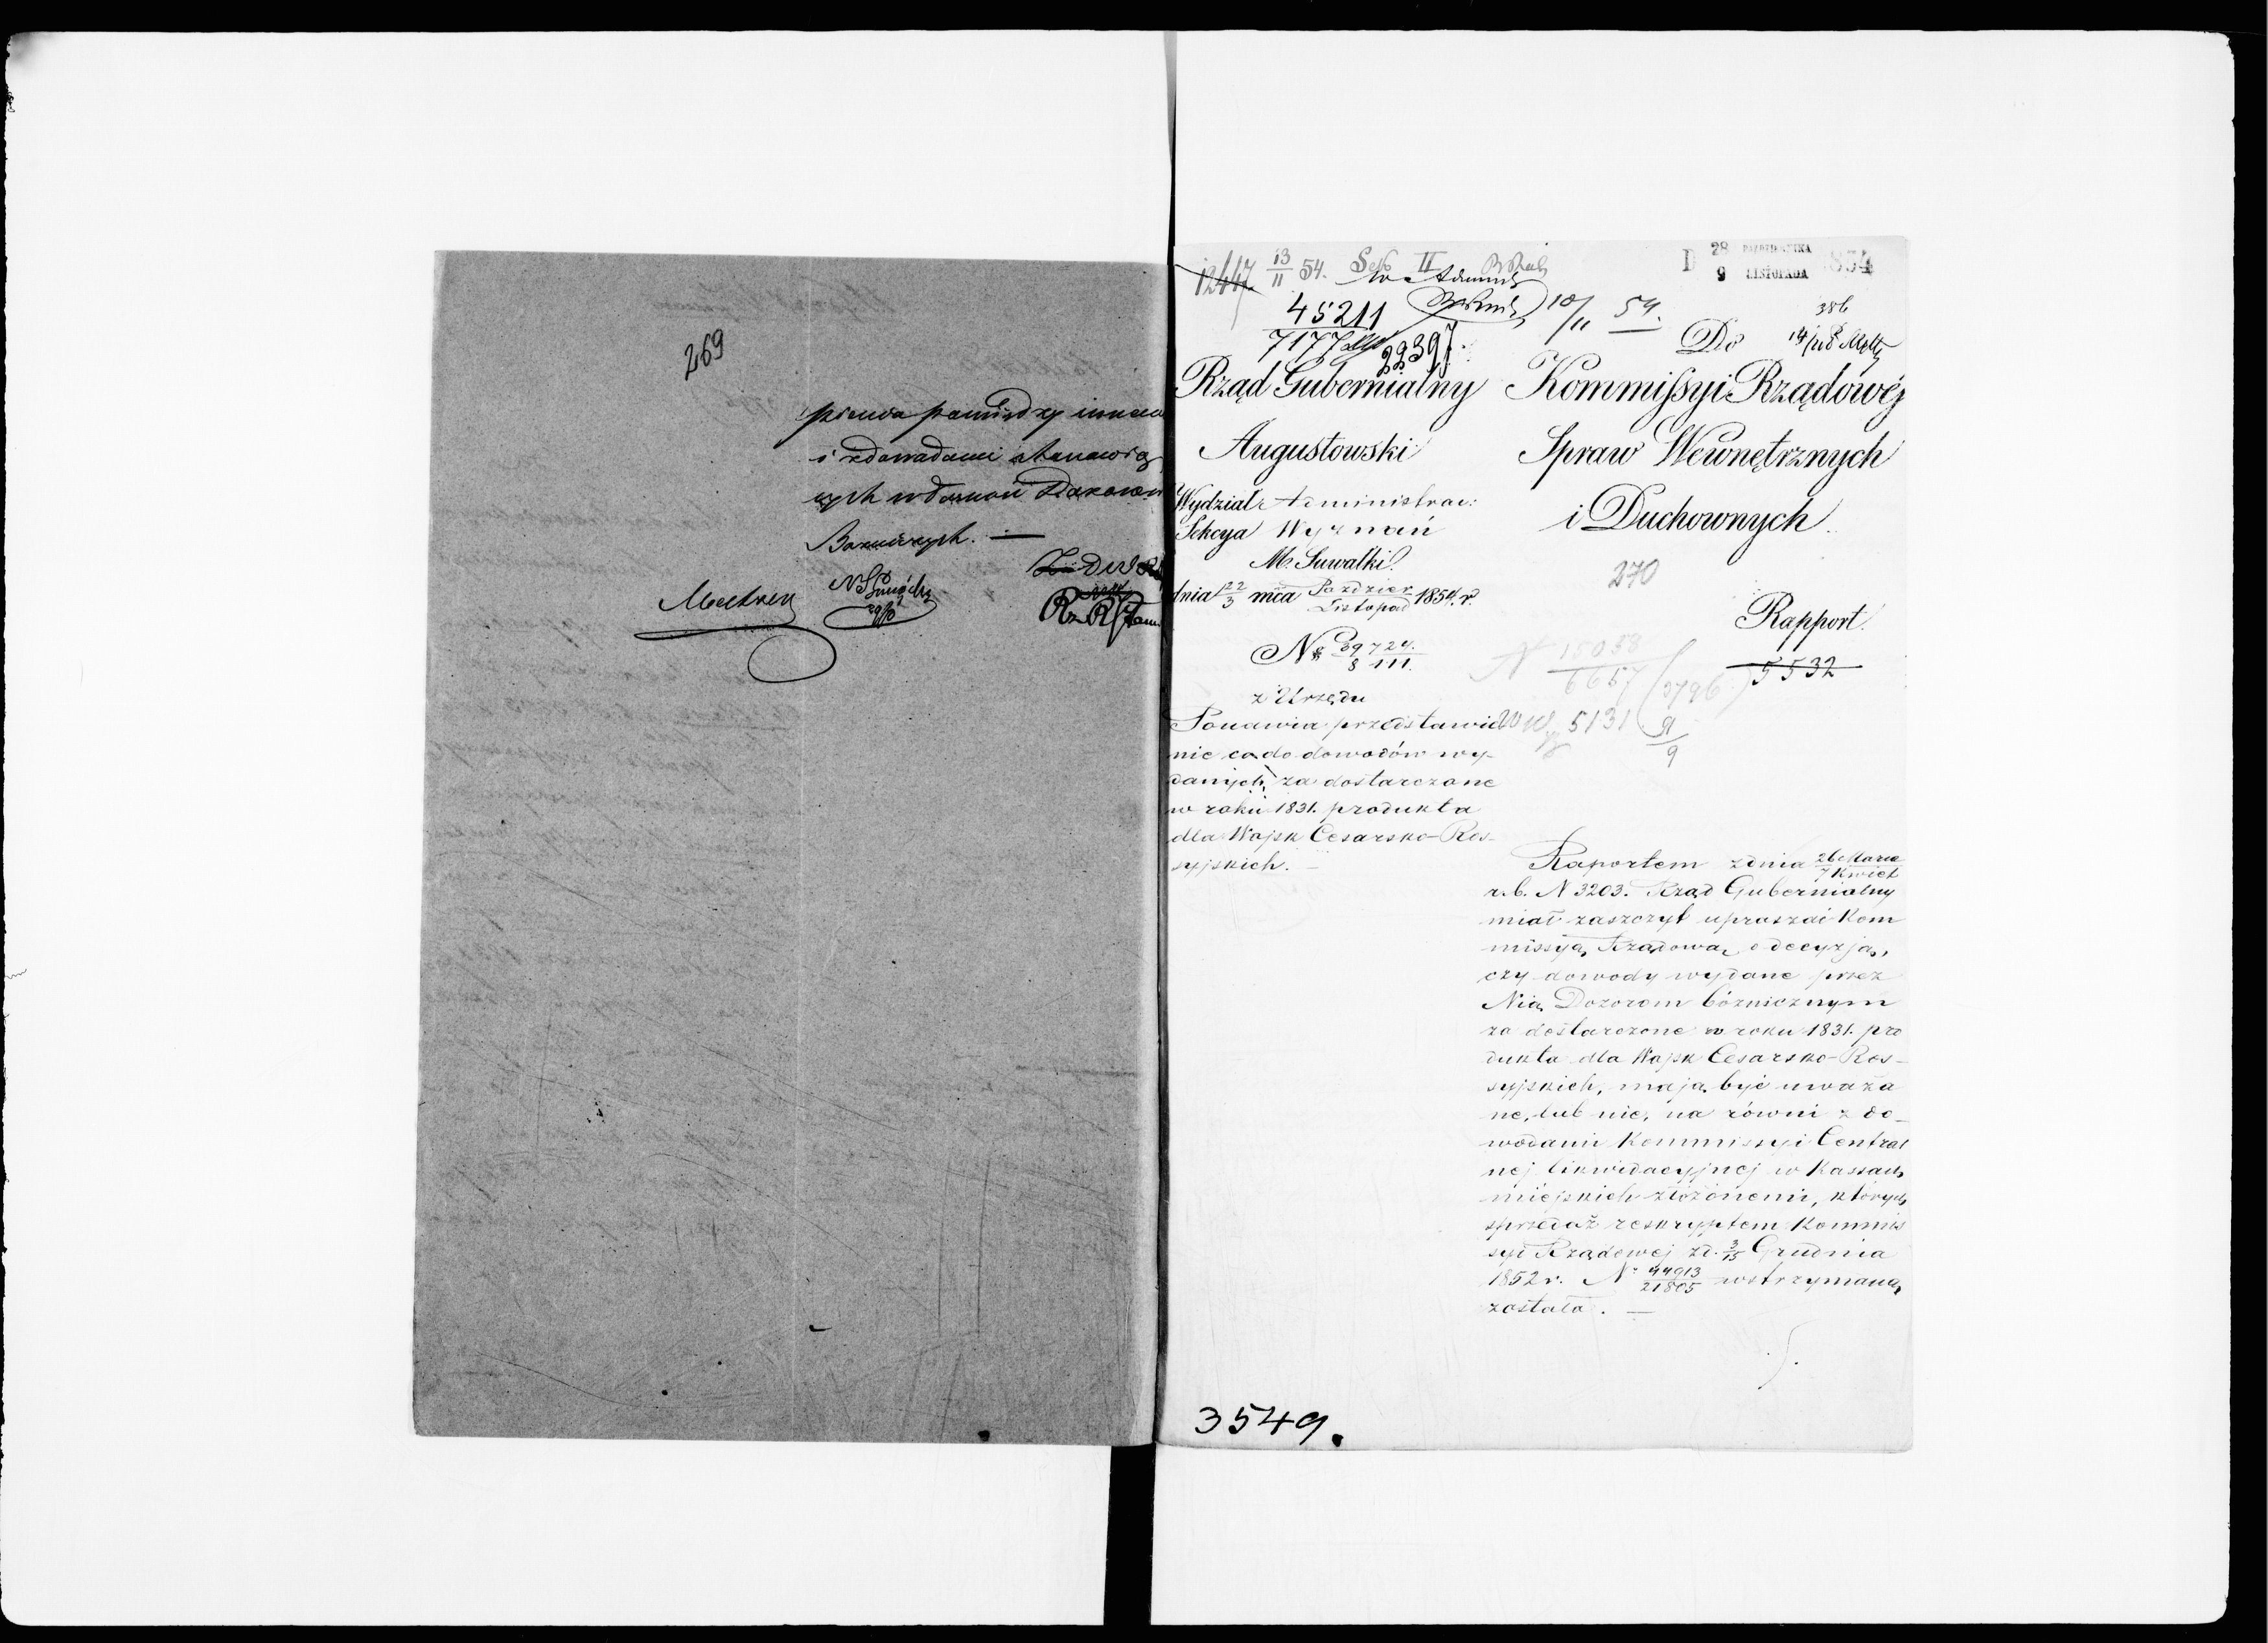 269
i z dowodami stanowią
cych własność Dozorów
Bożniczych. —
12447. 13/11 54. Sek II
w Admin
45211
7177
22397.
10/11 54.
D 28 PAŹDZIERNIKA 1854
9 LISTOPADA
386
Do
Rząd Gubernialny
Augustowski
Wydział Administrac:
Sekcya Wyznań
M. Suwałki.
dnia 22/3 mca Paździer/Listopad 1854. r.
№ 39724./8111.
z Urzędu
Ponawia przedstawie
nie co do dowodów wy-
danych, za dostarczone
w roku 1831. produkta
dla Wojsk Cesarsko-Ros-
syjskich. —
Kommissyi Rządowéj
Spraw Wewnętrznych
i Duchownych
270
Rapport.
5532
N 15058/6657
(3796)
5131
9/9
Raportem z dnia 26 Marca/7 Kwiet
r. b. N 3203. Rząd Gubernialny
miał zaszczyt upraszać Kom
missyą Rządową o decyzją,
czy dowody wydane przez
Nią Dozorom bóżnicznym
za dostarczone w roku 1831. pro
dukta dla Wojsk Cesarsko-Ros-
syjskich, mają być uważa
ne, lub nie, na równi z do-
wodami Kommissyi Central
nej likwidacyjnej w Kassach
miejskich złożonemi, których
sprzedaż reskryptem Kommis
syi Rządowej z d. 3/15 Grudnia
1852 r. № 44913/21805 wstrzymaną
została. —
3549.